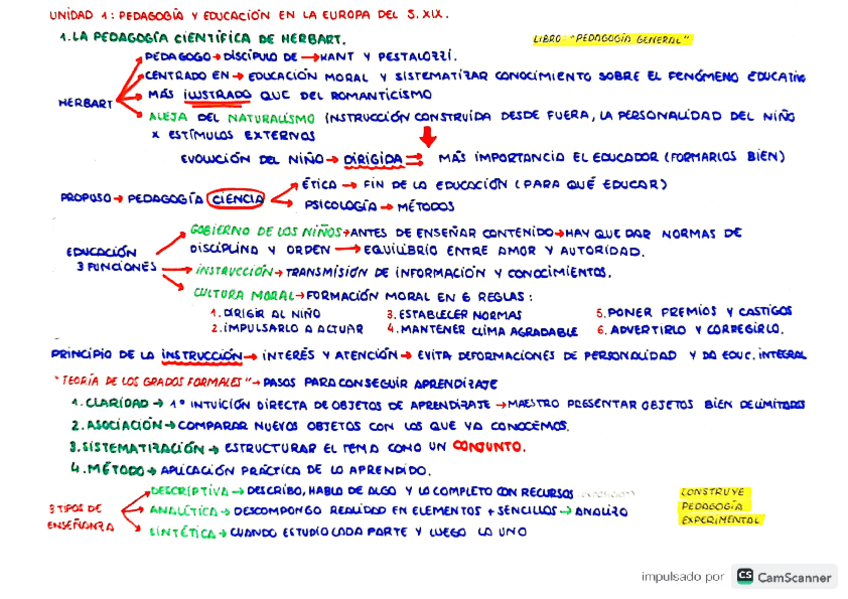 UNIDAD 1: PEDAGOGÍA Y EDUCACIÓN EN LA EUROPA DEL S.XIX.
1. LA PEDAGOGÍA CIENTÍFICA DE HERBART.
LIBRO: "PEDAGOGÍA GENERAL"
PEDAGOGO → DISCÍPULO DE → KANT Y PESTALOZZI.
CENTRADO EN → EDUCACIÓN MORAL Y SISTEMATIZAR CONOCIMIENTO SOBRE EL FENÓMENO EDUCATIVO
HERBART
MÁS ILUSTRADO QUE DEL ROMANTICISMO
ALEJA DEL NATURALISMO (INSTRUCCIÓN CONSTRUIDA DESDE FUERA, LA PERSONALIDAD DEL NIÑO
X ESTÍMULOS EXTERNOS
EVOLUCIÓN DEL NIÑO → DIRIGIDA → MÁS IMPORTANCIA EL EDUCADOR (FORMARLOS BIEN)
PROPUSO → PEDAGOGÍA CIENCIA
ÉTICA → FIN DE LA EDUCACIÓN (PARA QUÉ EDUCAR)
PSICOLOGÍA → MÉTODOS
EDUCACIÓN
3 FUNCIONES
GOBIERNO DE LOS NIÑOS → ANTES DE ENSEÑAR CONTENIDO → HAY QUE DAR NORMAS DE
DISCIPLINA Y ORDEN → EQUILIBRIO ENTRE AMOR Y AUTORIDAD.
INSTRUCCIÓN → TRANSMISIÓN DE INFORMACIÓN Y CONOCIMIENTOS.
CULTURA MORAL → FORMACIÓN MORAL EN 6 REGLAS:
1. DIRIGIR AL NIÑO 3. ESTABLECER NORMAS 5. PONER PREMIOS Y CASTIGOS
2. IMPULSARLO A ACTUAR 4. MANTENER CLIMA AGRADABLE 6. ADVERTIRLO Y CORREGIRLO.
PRINCIPIO DE LA INSTRUCCIÓN → INTERÉS Y ATENCIÓN → EVITA DEFORMACIONES DE PERSONALIDAD Y DA EDUC. INTEGRAL
"TEORÍA DE LOS GRADOS FORMALES" → PASOS PARA CONSEGUIR APRENDIZAJE
1. CLARIDAD → 1º INTUICIÓN DIRECTA DE OBJETOS DE APRENDIZAJE → MAESTRO PRESENTAR OBJETOS BIEN DELIMITADOS
2. ASOCIACIÓN → COMPARAR NUEVOS OBJETOS CON LOS QUE YA CONOCEMOS.
3. SISTEMATIZACIÓN → ESTRUCTURAR EL TEMA COMO UN CONJUNTO.
4. MÉTODO → APLICACIÓN PRÁCTICA DE LO APRENDIDO.
3 TIPOS DE
ENSEÑANZA
DESCRIPTIVA → DESCRIBO, HABLO DE ALGO Y LO COMPLETO CON RECURSOS
ANALÍTICA → DESCOMPONGO REALIDAD EN ELEMENTOS + SENCILLOS → ANALIZO
SINTÉTICA → CUANDO ESTUDIO CADA PARTE Y LUEGO LA UNO
CONSTRUYE
PEDAGOGÍA
EXPERIMENTAL
impulsado por CS CamScanner